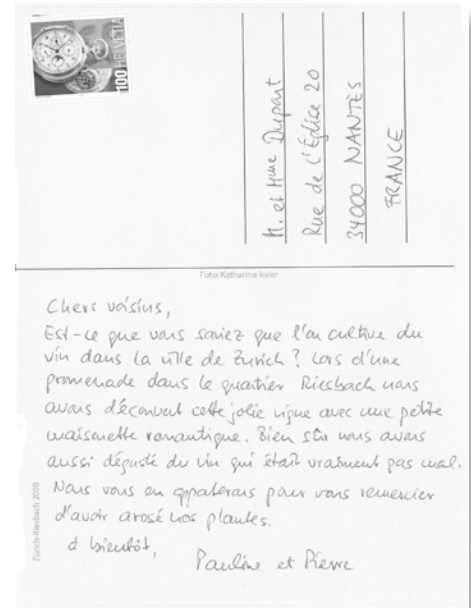 100 HELVETIA
M. et Mme Dupart
Rue de l'Église 20
34000 NANTES
FRANCE
Foto: Katharina Issler
Chers voisins,
Est-ce que vous saviez que l'on cultive du
vin dans la ville de Zurich ? Lors d'une
promenade dans le quartier Riesbach nous
avons découvert cette jolie vigne avec une petite
maisonette romantique. Bien sûr nous avons
aussi dégusté du vin qui était vraiment pas mal.
Nous vous en apporterons pour vous remercier
d'avoir arosé nos plantes.
à bientôt,
Pauline et Pierre
Zürich-Riesbach 2008